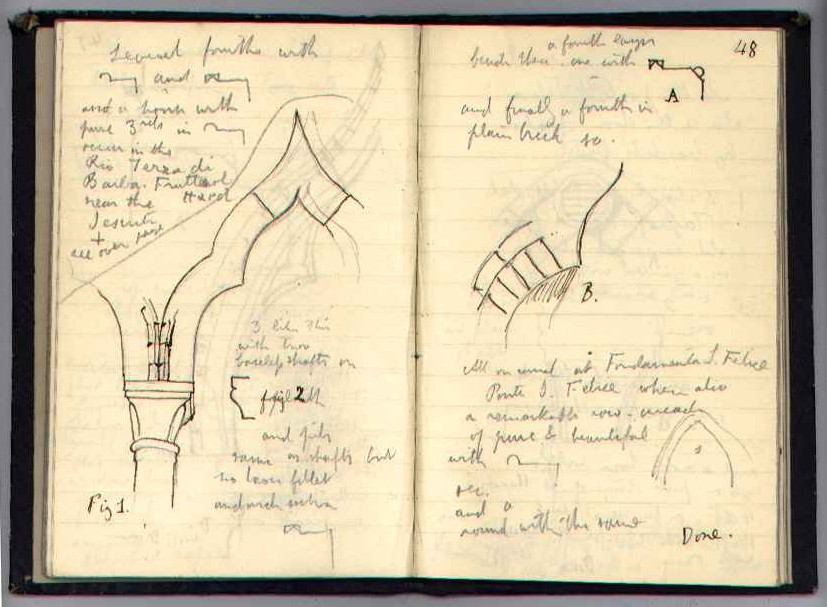 several fourths with
and
and a house with
pure 3rds in
occur in the
Rio Terra di
Barba Fruttarol
near the
Jesuits
+
all over page
3 like this
with two
baseless shafts on
fig 2
and
same as shafts but
no lower fillet
and arch
Fig 1.
48
a fourth larger
beside these. one with
A
and finally a fourth in
plain brick so.
B.
All on canal at Fondamenta S. Felice
Ponte S. Felice where also
a remarkable row
of pure & beautiful
with
and a
round with the same
Done.